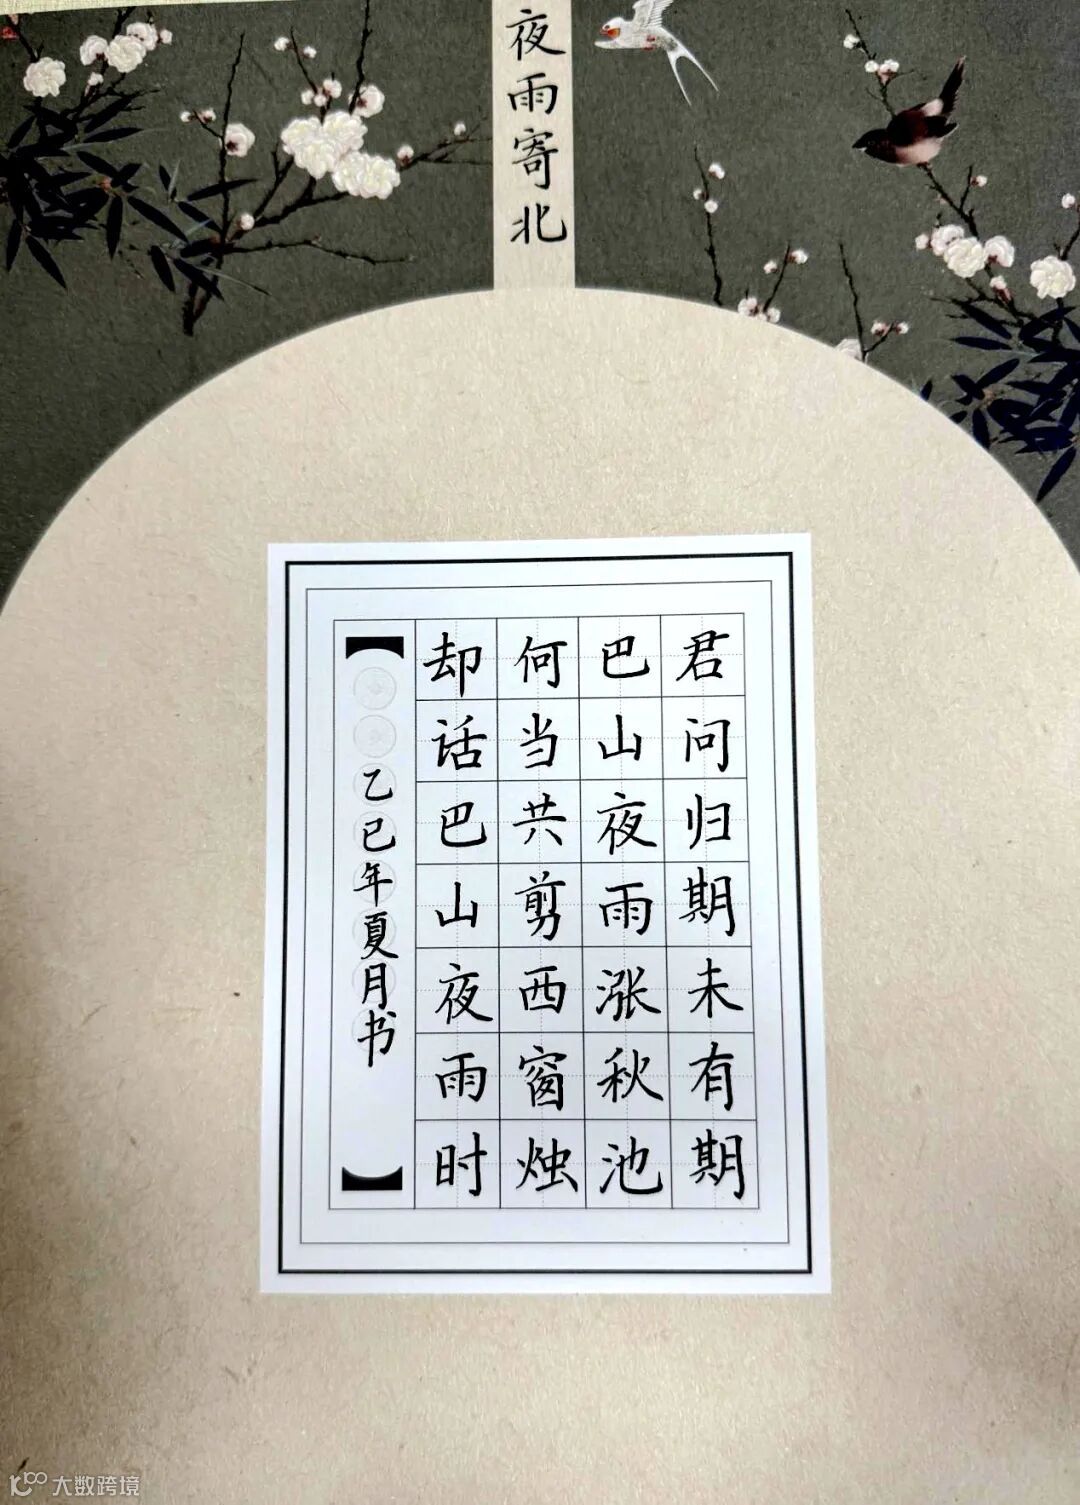 夜雨寄北
君问归期未有期
巴山夜雨涨秋池
何当共剪西窗烛
却话巴山夜雨时
乙巳年夏月书
大数跨境